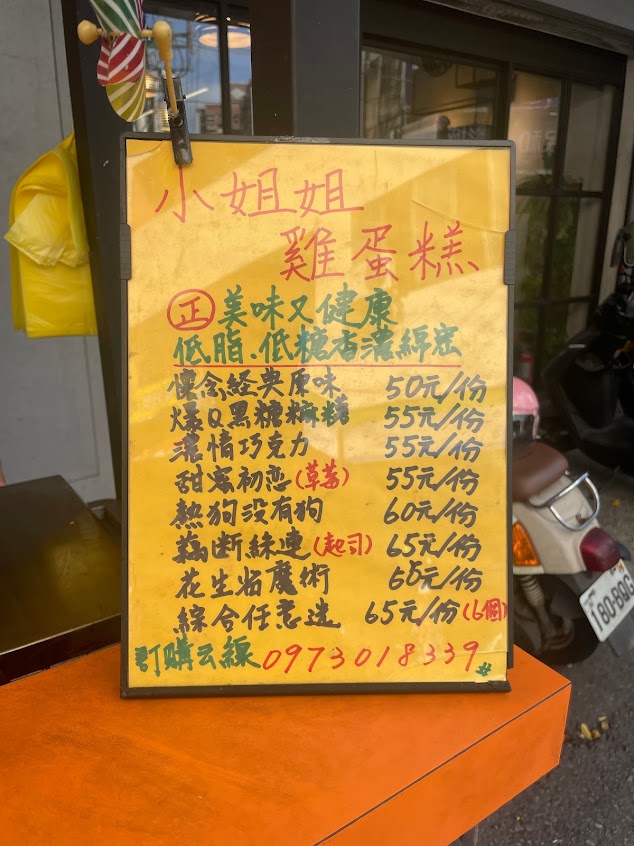 小姐姐
雞蛋糕
正 美味又健康
低脂.低糖香濃綿密
懷念經典原味 50元/份
爆Q黑糖麻糬 55元/份
濃情巧克力 55元/份
甜蜜初恋(草莓) 55元/份
熱狗没有狗 60元/份
藕断絲連(起司) 65元/份
花生省魔術 65元/份
綜合任意选 65元/份(6個)
訂購云線0973018339#
180-BQC